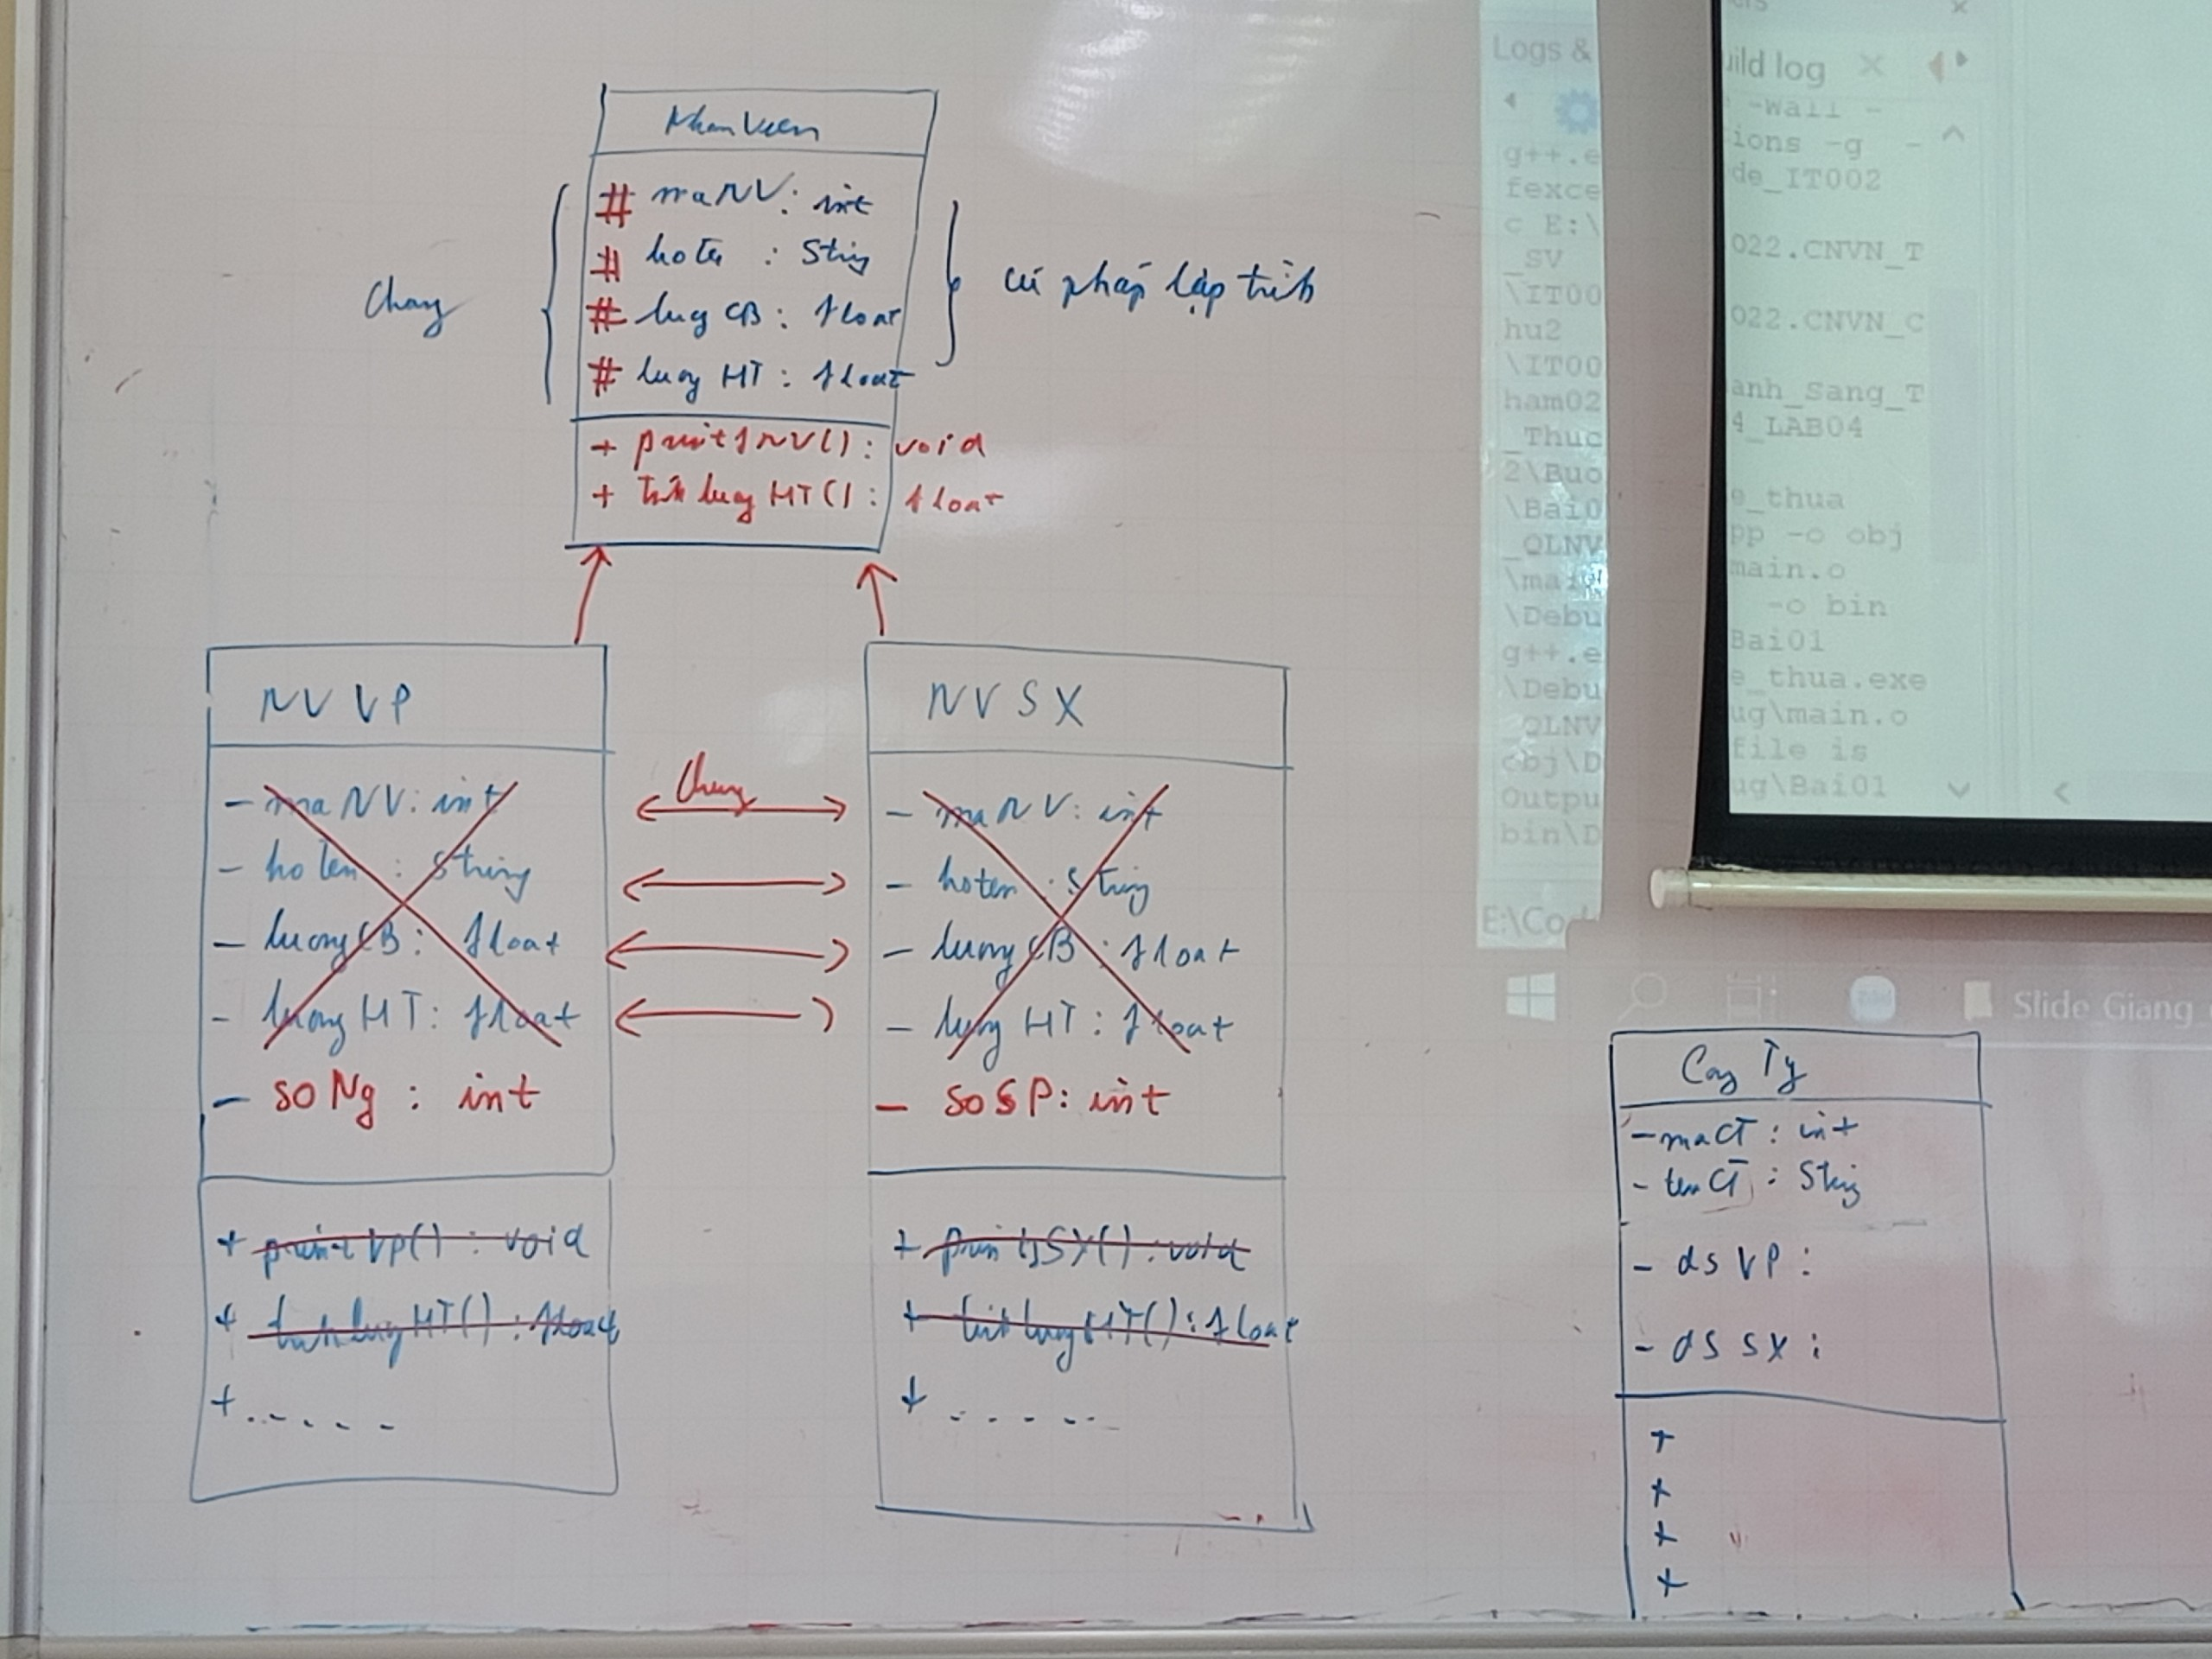 NhanVien
# maNV: int
# hoten : String
# luong CB : float
# luong HT : float
Chung
cú pháp lập trình
+ printfNV() : void
+ tinhluongHT() : float
NVVP
- maNV: int
- hoten : String
- luongCB : float
- luongHT : float
- soNg : int
+ printVP() : void
+ tinhluongHT() : float
+ .....
Chung
NVSX
- maNV: int
- hoten : String
- luongCB : float
- luong HT : float
- soSP: int
+ printfSX() : void
+ tinhluongHT() : float
+ .....
Cong Ty
- maCT : int
- tenCT : String
- dsVP :
- dsSX :
+
+
+
+
Logs &
g++.e
fexce
c E:\
_SV
\IT00
hu2
\IT00
ham02
_Thuc
2\Buo
\Bai0
_QLNV
\main
\Debu
g++.e
\Debu
_QLNV
obj\D
Outpu
bin\D
E:\Cod
uild log
-Wall -
ions -g -
de_IT002
022.CNVN_T
022.CNVN_C
anh_Sang_T
4_LAB04
e_thua
pp -o obj
main.o
-o bin
Bai01
e_thua.exe
ug\main.o
file is
ug\Bai01
Slide_Giang